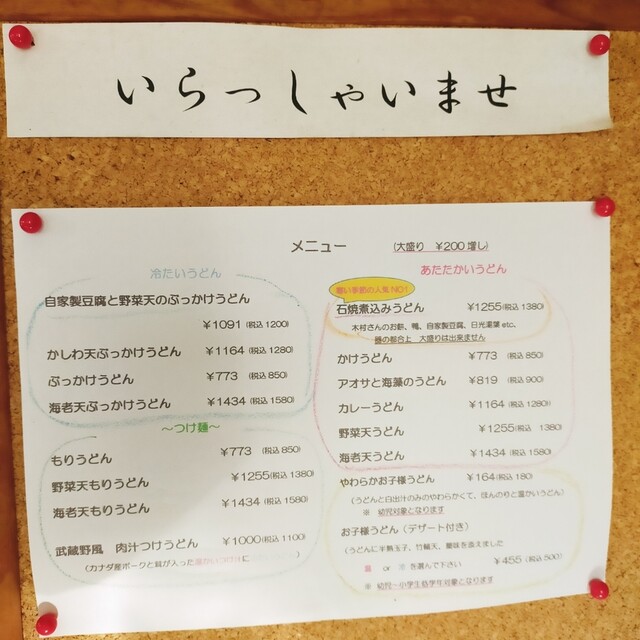 いらっしゃいませ
メニュー (大盛り ￥200増し)
冷たいうどん
自家製豆腐と野菜天のぶっかけうどん
￥1091 (税込 1200)
かしわ天ぶっかけうどん ￥1164 (税込 1280)
ぶっかけうどん ￥773 (税込 850)
海老天ぶっかけうどん ￥1434 (税込 1580)
～つけ麺～
もりうどん ￥773 (税込 850)
野菜天もりうどん ￥1255 (税込 1380)
海老天もりうどん ￥1434 (税込 1580)
武蔵野風 肉汁つけうどん ￥1000 (税込 1100)
(カナダ産ポークと葱が入った
あたたかいうどん
寒い季節の人気NO！
石焼煮込みうどん ￥1255 (税込 1380)
木村さんのお餅、鴨、自家製豆腐、日光湯葉 etc、
器の都合上 大盛りは出来ません
かけうどん ￥773 (税込 850)
アオサと海藻のうどん ￥819 (税込 900)
カレーうどん ￥1164 (税込 1280))
野菜天うどん ￥1255 (税込 1380)
海老天うどん ￥1434 (税込 1580)
やわらかお子様うどん ￥164 (税込 180)
(うどんと白出汁のみのやわらかくて、ほんのりと温かいうどん)
※ 幼児対象となります
お子様うどん (デザート付き)
(うどんに半熟玉子、竹輪天、麺味を添えました
or を選んで下さい ￥455 (税込 500)
※ 幼児～小学生低学年対象となります